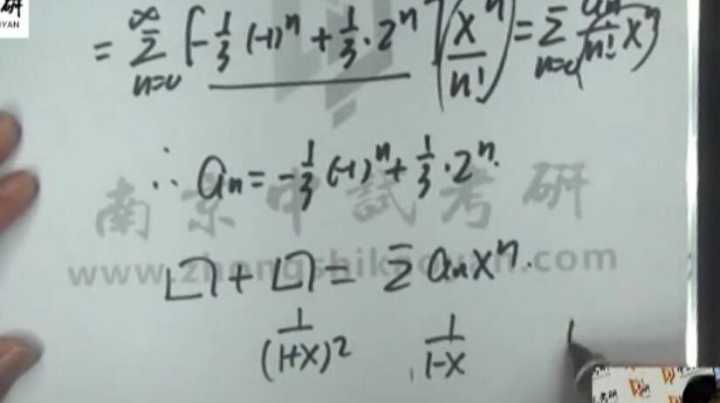 研
= \sum_{n=0}^{\infty} [-\frac{1}{3}(-1)^n + \frac{1}{3} \cdot 2^n] (\frac{x^n}{n!}) = \sum_{n=0} \frac{a_n}{n!} x^n
∴ a_n = -\frac{1}{3}(-1)^n + \frac{1}{3} \cdot 2^n.
南京中試考研
www.zhongshikaoyan.com
□ + □ = Σ a_n x^n.
\frac{1}{(1+x)^2} \frac{1}{1-x}